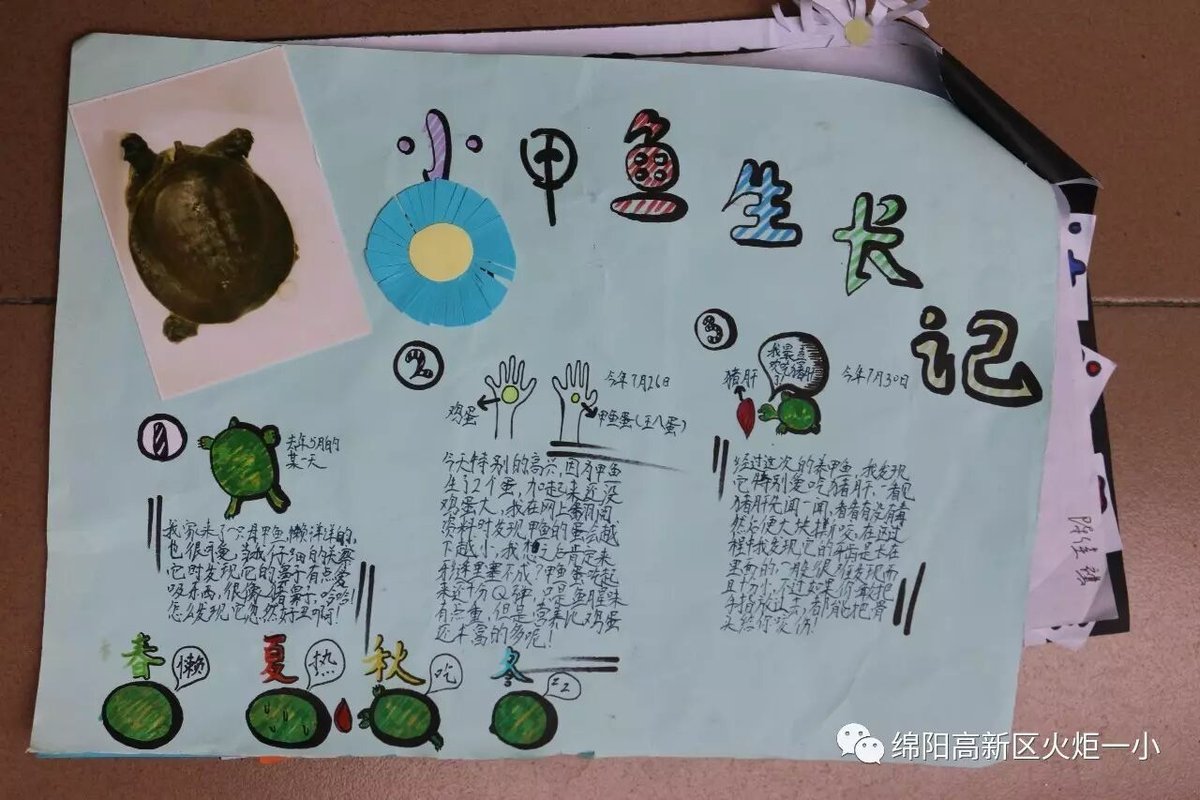 小甲鱼生长记
1
去年5月的
某一天
我家来了一只甲鱼,懒洋洋的,
也很可爱,当我仔细的观察
它时发现它的鼻子有点爱
吸东西,很像猪鼻子,哈哈!
怎么发现它忽然好丑啊!
2
鸡蛋
今年7月26日
甲鱼蛋(王八蛋)
今天特别的高兴,因为甲鱼
生了2个蛋,加起来还没
鸡蛋大,我在网上翻阅
资料时发现甲鱼的蛋会越
下越小,我想
来还十分Q弹,只是鱼腥味
有点重,但是,营养比鸡蛋
还丰富的多呢!
3
猪肝
我果真
喜欢吃猪肝
今年7月30日
经过这次的养甲鱼,我发现
它特别爱吃猪肝,一看见
猪肝先闻一闻,看看有没有毒
然后便大块撕咬,在这过
程中我发现它的牙齿是长在
里面的,一般很难发现而
且十分小,不过如果你敢把
手指放过去,者
头给你咬伤!
春
懒
夏
热
秋
吃
冬
zz
陈佳祺
绵阳高新区火炬一小